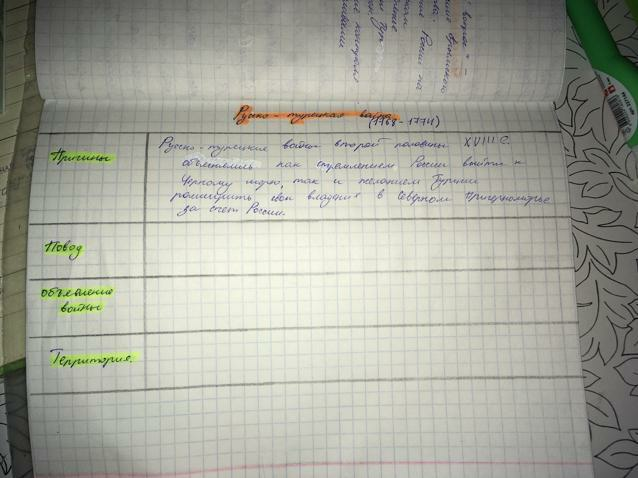 Русско-турецкая война
(1768-1774)
Причины
Русско-турецкие войны второй половины XVIII в.
объяснялись как стремлением России выйти к
Чёрному морю, так и желанием Турции
расширить свои владения в Северном Причерноморье
за счёт России.
Повод
Объявление
войны
Территория.